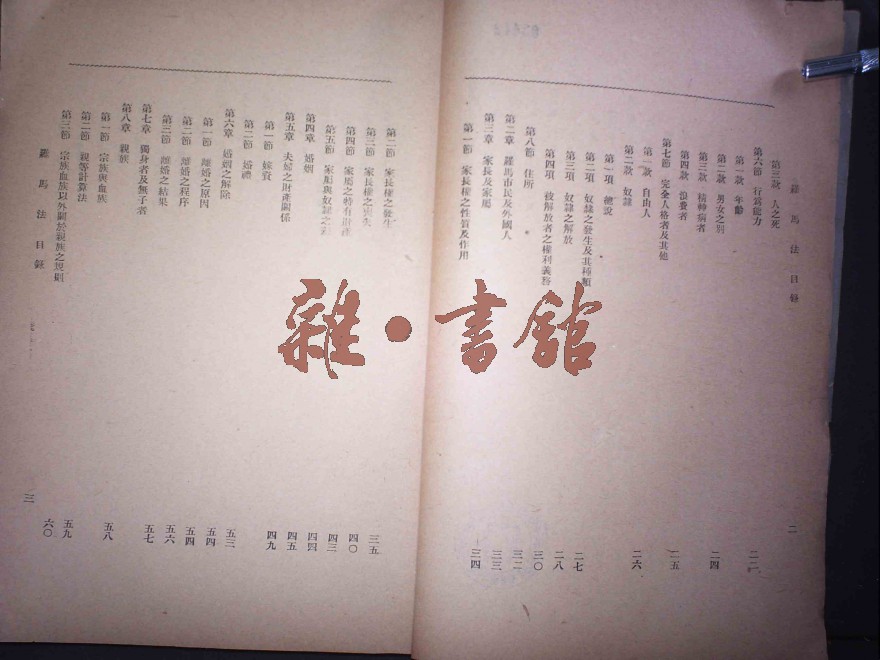 羅馬法目錄
二
第三款 人之死
第六節 行爲能力 二二
第一款 年齡
第二款 男女之別 二四
第三款 精神病者
第四款 浪費者 二五
第七節 完全人格者及其他
第一款 自由人
第二款 奴隸 二六
第一項 總說
第二項 奴隸之發生及其種類 二七
第三項 奴隸之解放 二八
第四項 被解放者之權利義務 三〇
第八節 住所
第二章 羅馬市民及外國人 三二
第三章 家長及家屬 三三
第一節 家長權之性質及作用 三四
第二節 家長權之發生 三五
第三節 家長權之喪失 四〇
第四節 家屬之特有財產 四三
第五節 家屬與奴隸之
第四章 婚姻 四四
第五章 夫婦之財產關係 四五
第一節 嫁資 四九
第二節 婚禮
第六章 婚姻之解除 五三
第一節 離婚之原因 五四
第二節 離婚之程序 五四
第三節 離婚之結果 五六
第七章 獨身者及無子者 五七
第八章 親族
第一節 宗族與血族 五八
第二節 親等計算法
第三節 宗族血族以外關於親族之規則 五九
六〇
羅馬法目錄
三
雜·書館